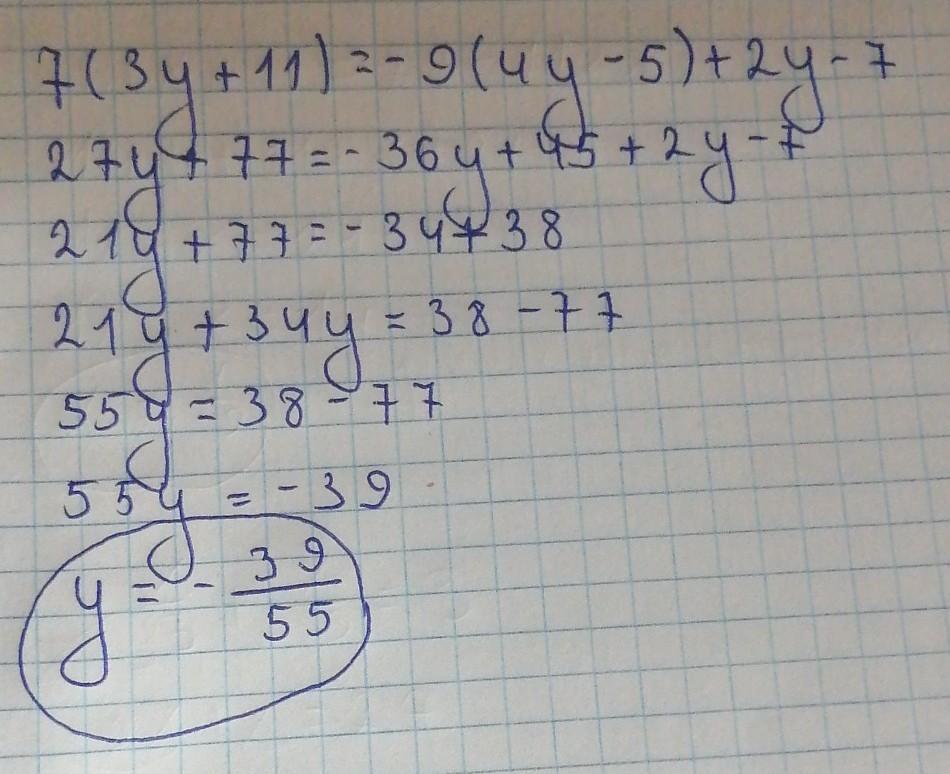 7(3y+11)=-9(4y-5)+2y-7
27y+77=-36y+45+2y-7
21y+77=-34+38
21y+34y=38-77
55y=38-77
55y=-39
y=-39/55